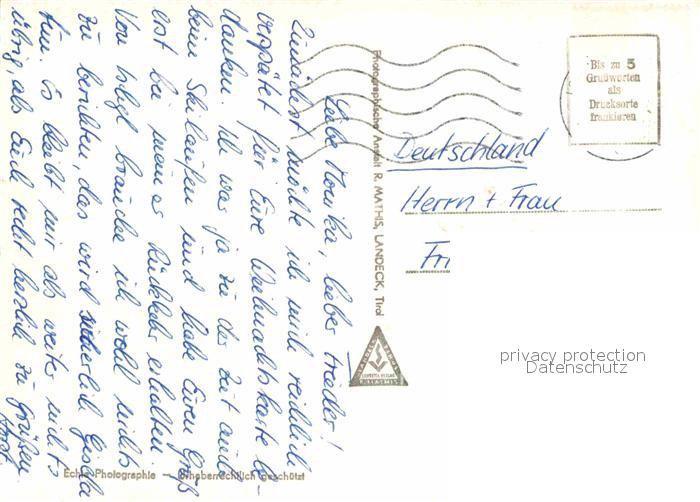 Liebe Monika, lieber Frieder!
Zunächst möchte ich mich reichlich
verspätet für Eure Weihnachtskarte be-
danken. Ich war ja zu der Zeit
beim Skilaufen und habe Euren Gruß
erst bei meiner Rückkehr erhalten
Von brauche ich wohl nichts
zu berichten, das wird sicherlich Gisela
tun. Es bleibt mir als weiter nichts
übrig, als Euch recht herzlich zu grüßen
Echte Photographie — Urheberrechtlich geschützt
Photographische Anstalt R. MATHIS, LANDECK, Tirol
Bis zu 5
Grußworten
als
Drucksorte
frankieren
Deutschland
Herrn + Frau
Fri
privacy protection
Datenschutz